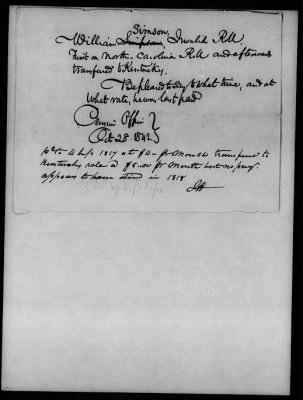 Simson,
William Simpson, Invalid Roll,
first on North Carolina Roll and afterwards
transfered to Kentucky.
Be pleased to say to what time, and at
what rate, he was last paid
Pension Office }
Oct 28. 1842.
1817 at $4 - pr Month transferred to
Kentucky role a $8.00 pr Month but no pay
appears to have in 1818